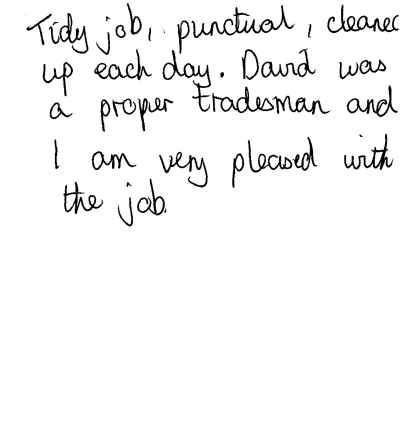 Tidy job, punctual, cleaned
up each day. David was
a proper tradesman and
I am very pleased with
the job.